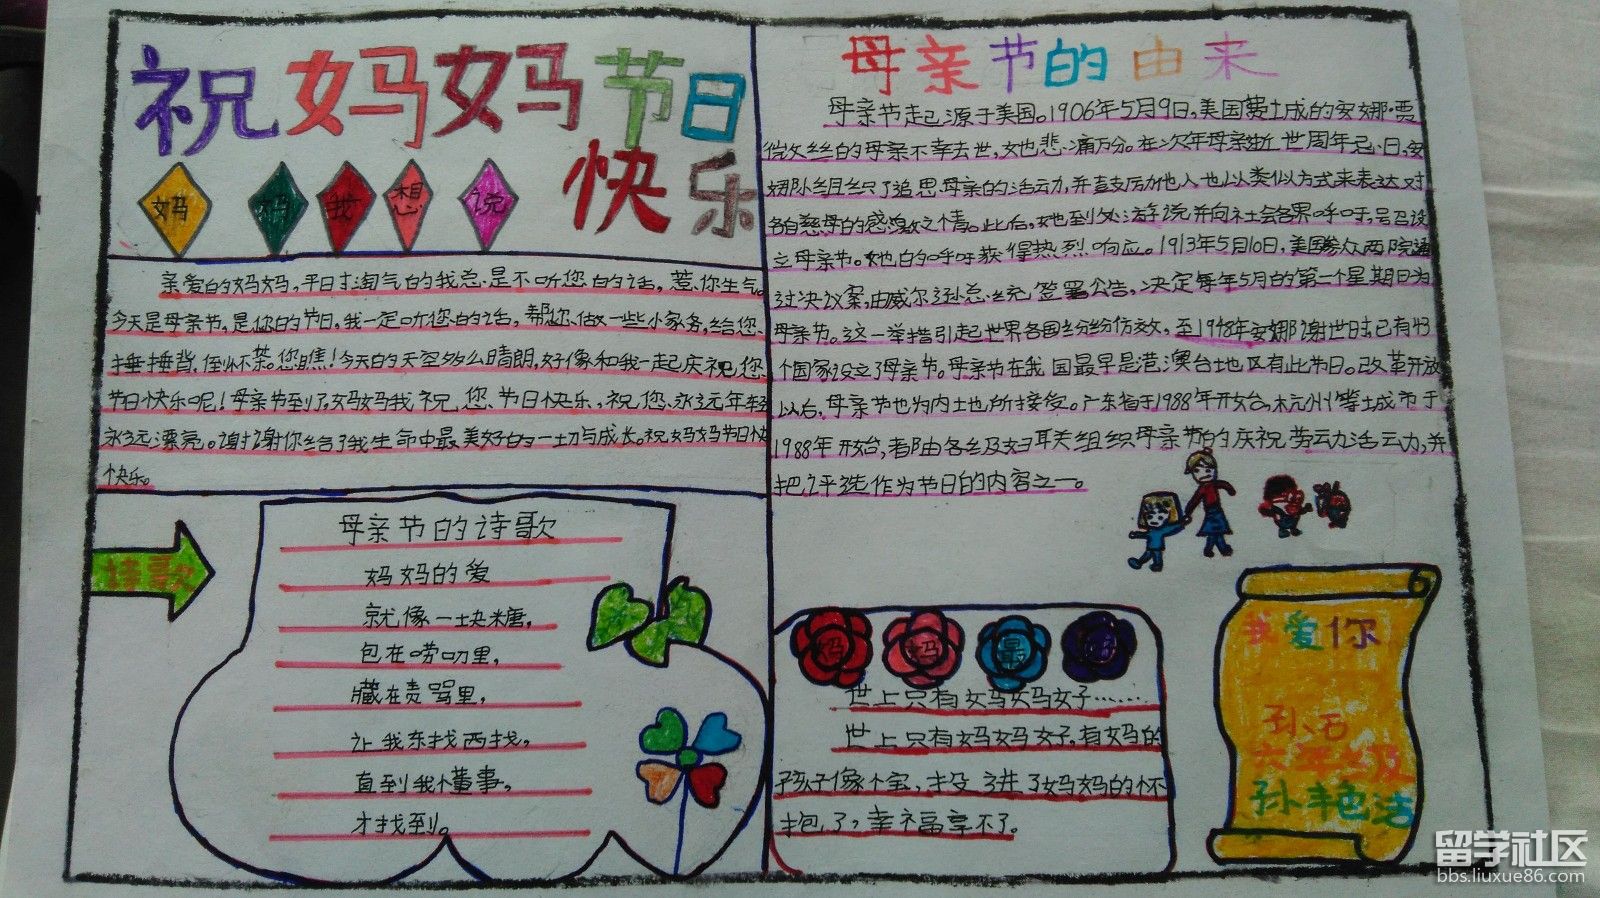 祝妈妈节日
快乐
妈妈我想说
亲爱的妈妈,平日才淘气的我总是不听您的话,惹你生气。
今天是母亲节,是您的节日,我一定听您的话,帮您做一些小家务,给您
捶捶背,倒怀茶。您瞧!今天的天空多么晴朗,好像和我一起庆祝您
节日快乐呢!母亲节到了,妈妈我祝您节日快乐,祝您永远年轻
永远漂亮。谢谢你给了我生命中最美好的一切与成长。祝妈妈节日快
快乐。
诗歌
母亲节的诗歌
妈妈的爱
就像一块糖,
包在唠叨里,
藏在责骂里,
让我东找西找,
直到我懂事,
才找到。
母亲节的由来
母亲节起源于美国。1906年5月9日,美国费土成的安娜·贾
维丝的母亲不幸去世,她悲痛万分。在次年母亲逝世周年忌日,安
娜队组织了追思母亲的活动,并鼓励他人也以类似方式来表达对
各自慈母的感激之情。此后,她到处游说并向社会各界呼吁,号召设
立母亲节。她的呼吁获得热烈响应。1913年5月10日,美国参众两院通
过决议案,由威尔逊总统签署公告,决定每年5月的第二个星期日为
母亲节。这一举措引起世界各国纷纷仿效,至1948年安娜谢世时,已有43
个国家设立了母亲节。母亲节在我国最早是港澳台地区有此节日。改革开放
以后,母亲节也为内土地所接受。广东省于1988年开始,杭州等城市于
1988年开始,都由各级妇联组织母亲节的庆祝劳动活动,并
把评选作为节日的内容之一。
妈妈最好
世上只有妈妈好……
世上只有妈妈好,有妈的
孩子像个宝,投进了妈妈的怀
抱了,幸福享不了。
我爱你
六年级
留学社区
bbs.liuxue86.com